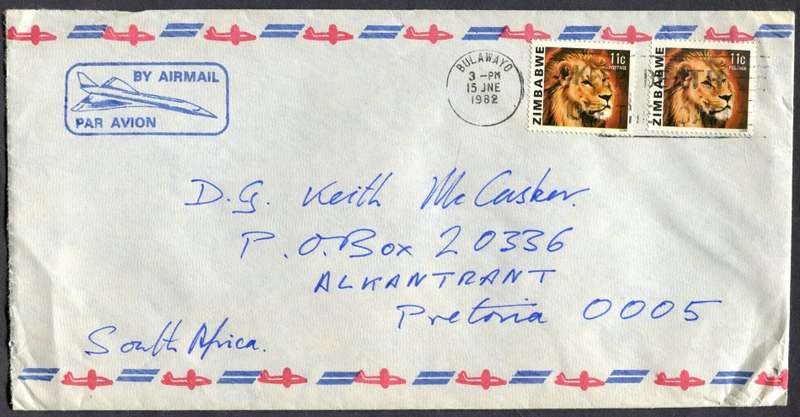 BY AIRMAIL
PAR AVION
BULAWAYO
3 -PM
15 JNE
1982
ZIMBABWE
11c
POSTAGE
ZIMBABWE
11c
POSTAGE
D.G. Keith McCasker.
P.O. Box 20336
ALKANTRANT
Pretoria 0005
South Africa.